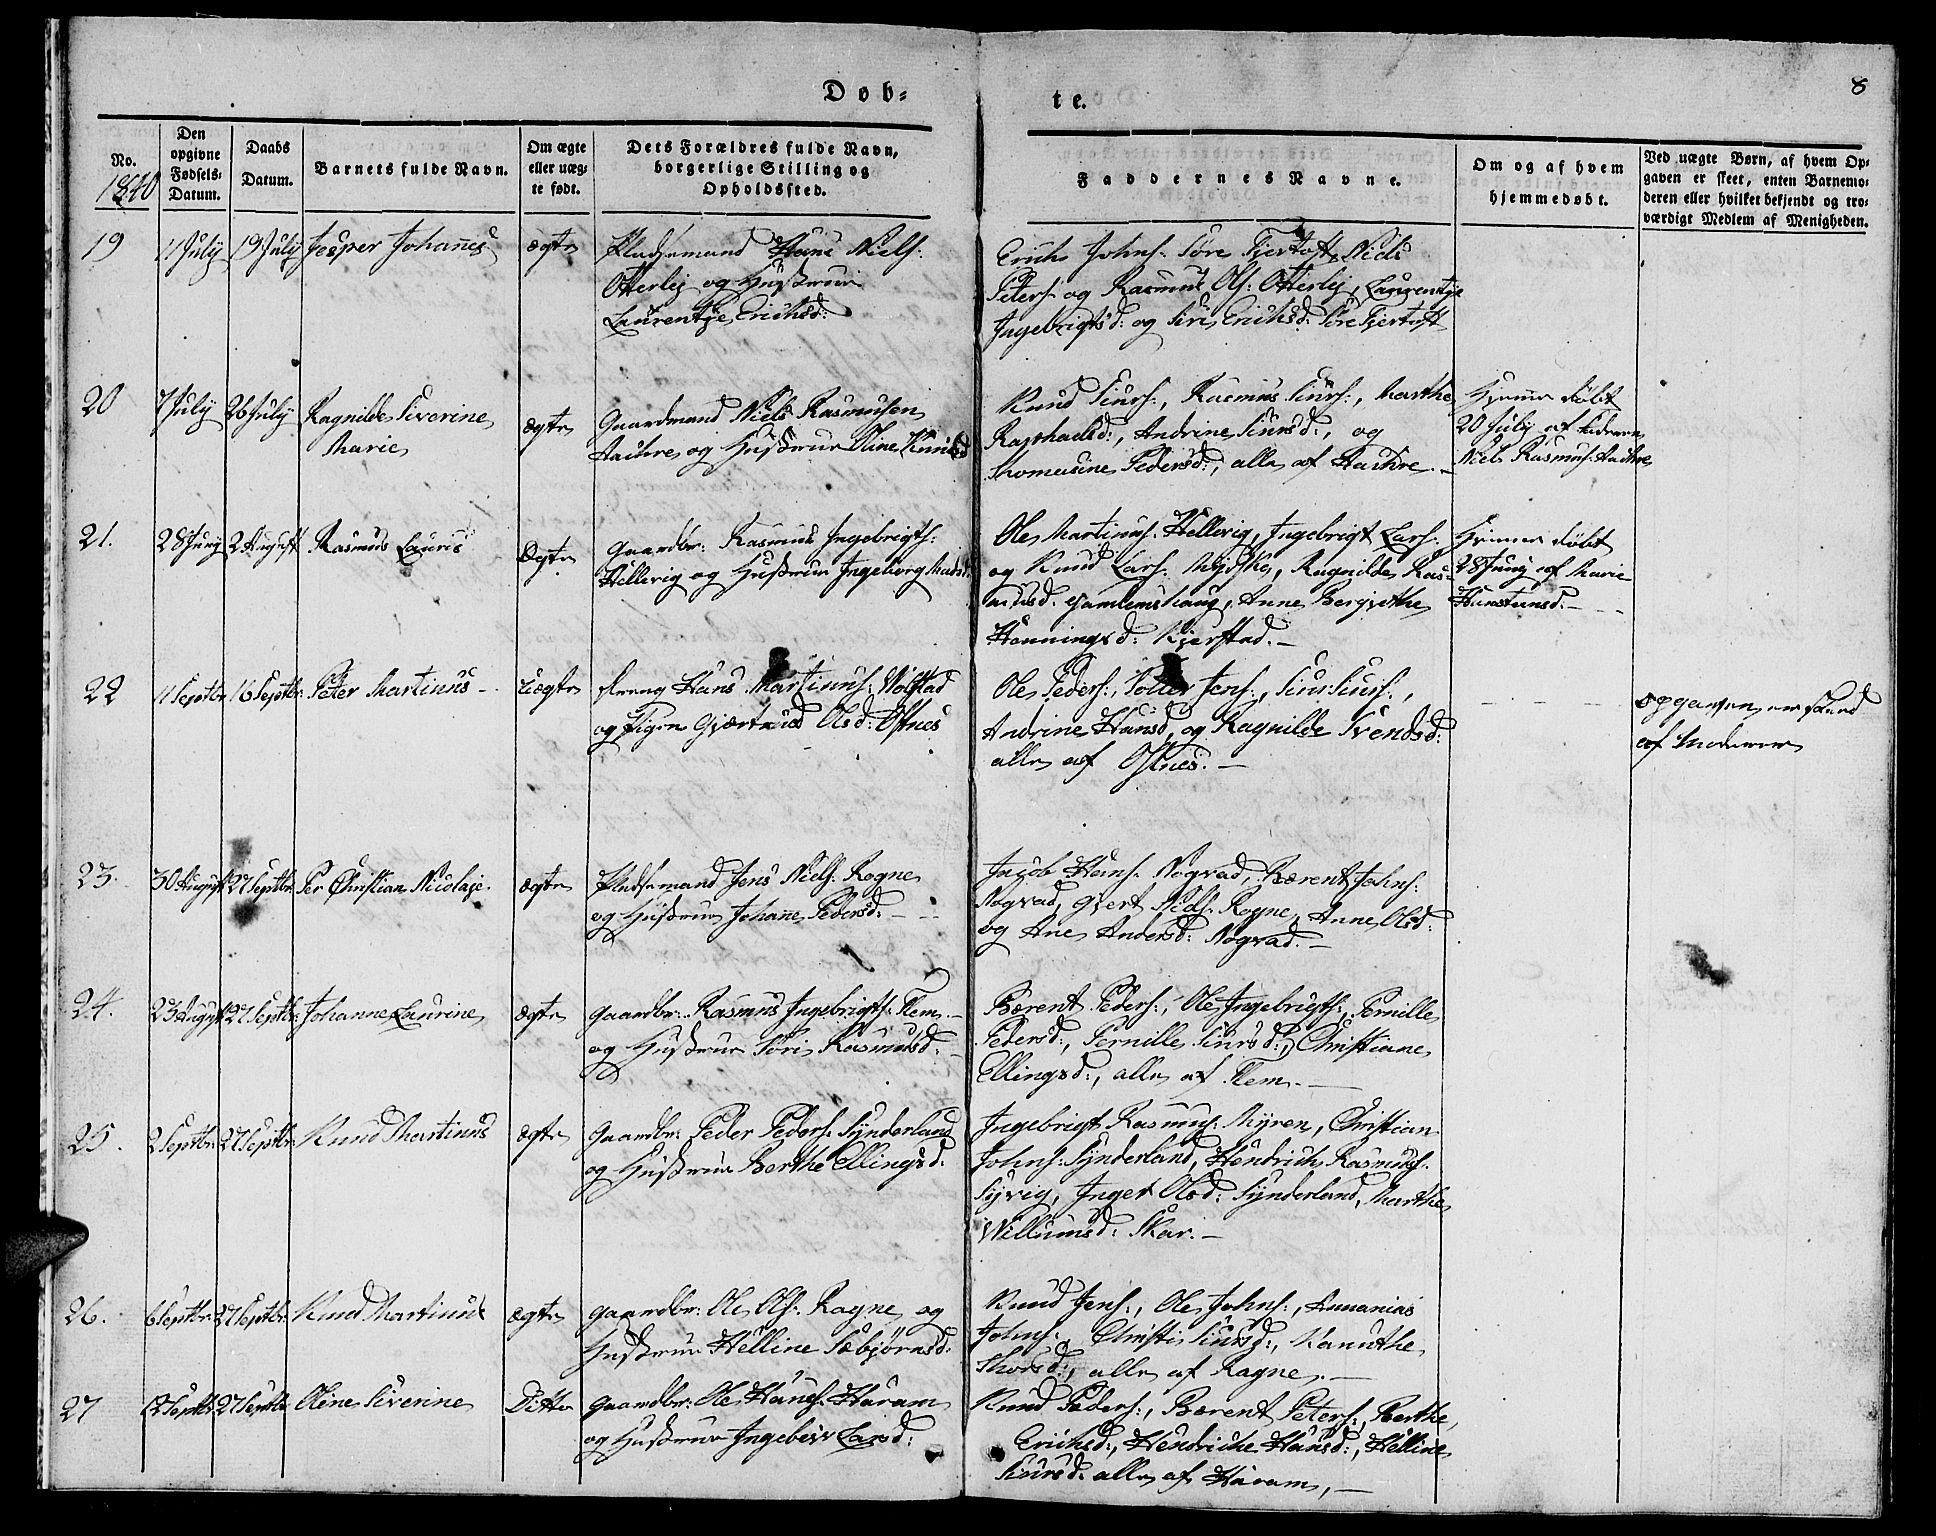 Døb=
te.
8
No.
1840
Den
opgivne
Fødsels-
Datum.
Daabs
Datum.
Barnets fulde Navn.
Om ægte
eller uæg-
te født.
Dets Forældres fulde Navn,
borgerlige Stilling og
Opholdssted.
Faddernes Navne.
Om og af hvem
hjemmedøbt.
Ved uægte Børn, af hvem Op-
gaven er skeet, enten Barnemo-
deren eller hvilket bekjendt og tro-
værdigt Medlem af Menigheden.
19
11 July
19 July
Jesper Johannes
ægte
Pladsemand Hans Niels:
Otterlej og Hustrue
Laurentze Erichsd:
Erich Johns: Søre Fjertoft, Niels
Peters: og Rasmus Ols: Otterlej, Laurentze
Ingebrigtsd: og Siri Erichsd: Søre Fjertoft
20
7 July
26 July
Ragnilde Siverine
Marie
ægte
Gaardmand Niels Rasmusen
Hauhre og Hustrue Oline Knudsd
Knud Siurs:, Rasmus Siurs:, Marthe
Raphaelsd:, Andrine Siursd:, og
Thomasine Pedersd:, alle af Hauhre. —
Hjemme døbt
20 July af Faderen
Niels Rasmus: Hauhre
21.
28 Juny
2 August
Rasmus Lauris
Ægte
Gaardbr: Rasmus Ingebrigts:
Hellevig og Hustrue Ingeborg Madsd:
Ole Martinus: Hellevig, Ingebrigt Lars:
og Knud Lars: Mydske, Ragnilde Ras-
musd: Gamlemshaug, Anne Bergithe
Henningsd: Kjerstad. —
Hjemme døbt
28 Juny af Marie
Haastensd: —
22
11 Septbr:
16 Septbr:
Peter Martinus —
Uægte
Dreng Hans Martinus: Wolstad
og Pigen Gjertrud Olsd: Ostnes
Ole Peders:, Peter Jens:, Siur Siurs:,
Andrine Hansd, og Ragnilde Svendsd:
alle af Ostnes. —
Opgaven er skeed
af Moderen
23.
30 August
27 Septbr:
Per Christian Nicolaje.
ægte
Pladsemand Jens Niels: Rogne
og Hustrue Johanne Pedersd: —
Jacob Hans: Nogvad, Bærent Johns:
Nogvad, Gjert Niels: Rogne, Anne Olsd:
og Ane Andersd: Nogvad. —
24.
23 August
27 Septbr:
Johanne Laurine
ægte
Gaardbr: Rasmus Ingebrigts: Flem —
og Hustrue Siri Rasmusd: —
Bærent Peders:, Ole Ingebrigts:, Pernille
Pedersd:, Pernille Siursd:, Christiane
Ellingsd:, alle af Flem. —
25.
2 Septbr:
27 Septbr:
Knud Martinus
ægte
Gaardbr: Peder Peders: Synderland
og Hustrue Berthe Ellingsd:
Ingebrigt Rasmus: Myren, Christian
Johns: Synderland, Hendrich Rasmus:
Syvig, Inger Olsd: Synderland, Marthe
Willumsd: Skar. —
26.
6 Septbr:
27 Septbr:
Knud Martinus
ægte
Gaardbr: Ole Ols: Rogne og
Hustrue Helline Sæbjørnsd:
Knud Jens:, Ole Johns:, Annanias
Johns:, Christi Siursd:, Kanuthe
Thorsd:, alle af Rogne. —
27
12 Septbr:
27 Septbr:
Oline Siverine
Ditto
Gaardbr: Ole Hans: Haram
og Hustrue Ingebeir Larsd:
Knud Peders:, Bærent Peters:, Berthe
Erichsd:, Hendriche Hansd:, Helline
Siursd: alle af Haram, —